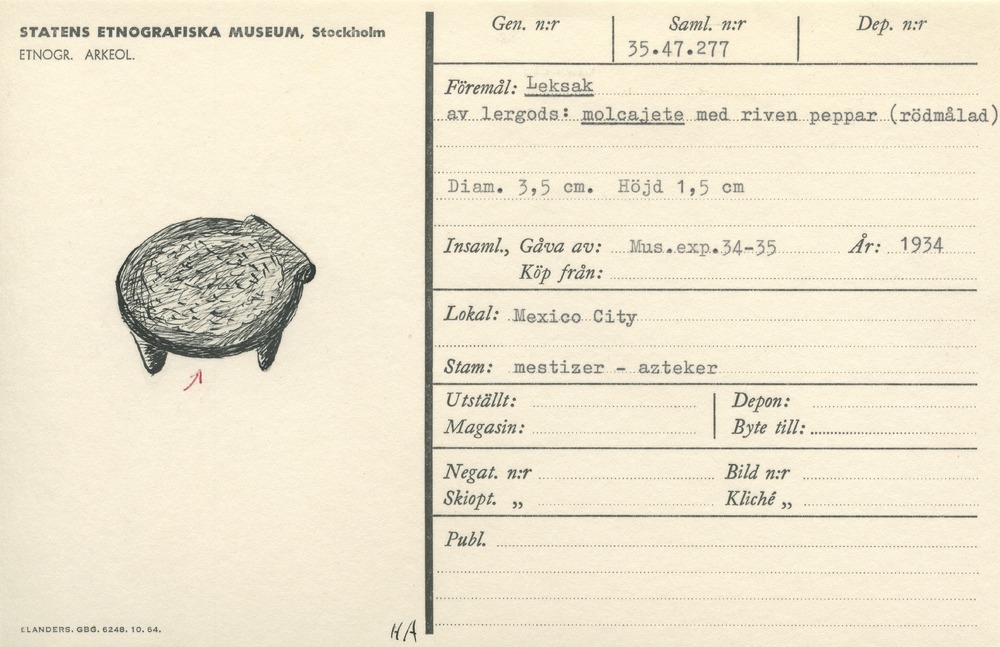 STATENS ETNOGRAFISKA MUSEUM, Stockholm
ETNOGR. ARKEOL.
ELANDERS. GBG. 6248. 10. 64.
HA
Gen. n:r Saml. n:r Dep. n:r
35.47.277
Föremål: Leksak
av lergods: molcajete med riven peppar (rödmålad)
Diam. 3,5 cm. Höjd 1,5 cm
Insaml., Gåva av: Mus.exp.34-35 År: 1934
Köp från:
Lokal: Mexico City
Stam: mestizer - azteker
Utställt: Depon:
Magasin: Byte till:
Negat. n:r Bild n:r
Skiopt. „ Kliché „
Publ.